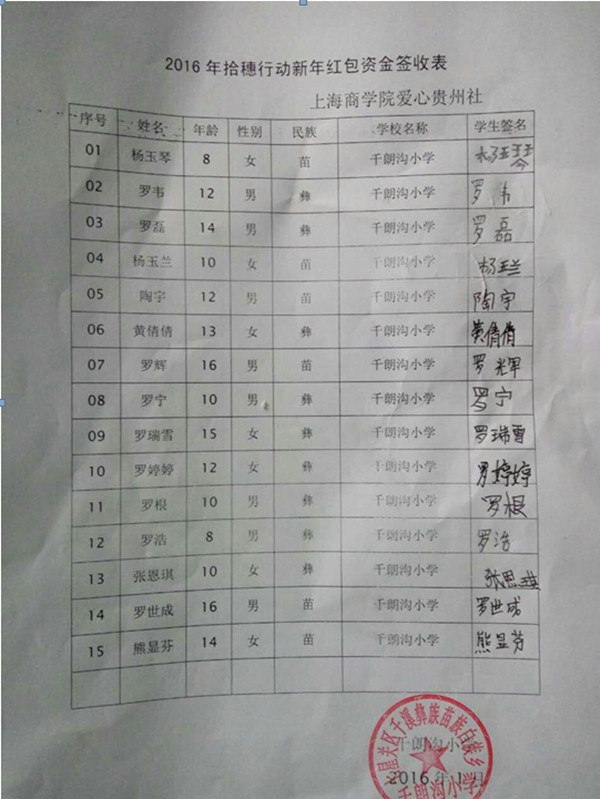 2016 年拾穗行动新年红包资金签收表
上海商学院爱心贵州社
序号 姓名 年龄 性别 民族 学校名称 学生签名
01 杨玉琴 8 女 苗 千朗沟小学 杨玉琴
02 罗韦 12 男 彝 千朗沟小学 罗韦
03 罗磊 14 男 彝 千朗沟小学 罗磊
04 杨玉兰 10 女 苗 千朗沟小学 杨玉兰
05 陶宇 12 男 苗 千朗沟小学 陶宇
06 黄倩倩 13 女 彝 千朗沟小学 黄倩倩
07 罗辉 16 男 苗 千朗沟小学 罗辉
08 罗宁 10 男 彝 千朗沟小学 罗宁
09 罗瑞雪 15 女 彝 千朗沟小学 罗瑞雪
10 罗婷婷 12 女 彝 千朗沟小学 罗婷婷
11 罗根 10 男 彝 千朗沟小学 罗根
12 罗浩 8 男 彝 千朗沟小学 罗浩
13 张恩琪 10 女 彝 千朗沟小学 张恩琪
14 罗世成 16 男 苗 千朗沟小学 罗世成
15 熊显芬 14 女 苗 千朗沟小学 熊显芬
星关区千溪彝族苗族白族乡
千朗沟小
2016 年 1 月
千朗沟小学